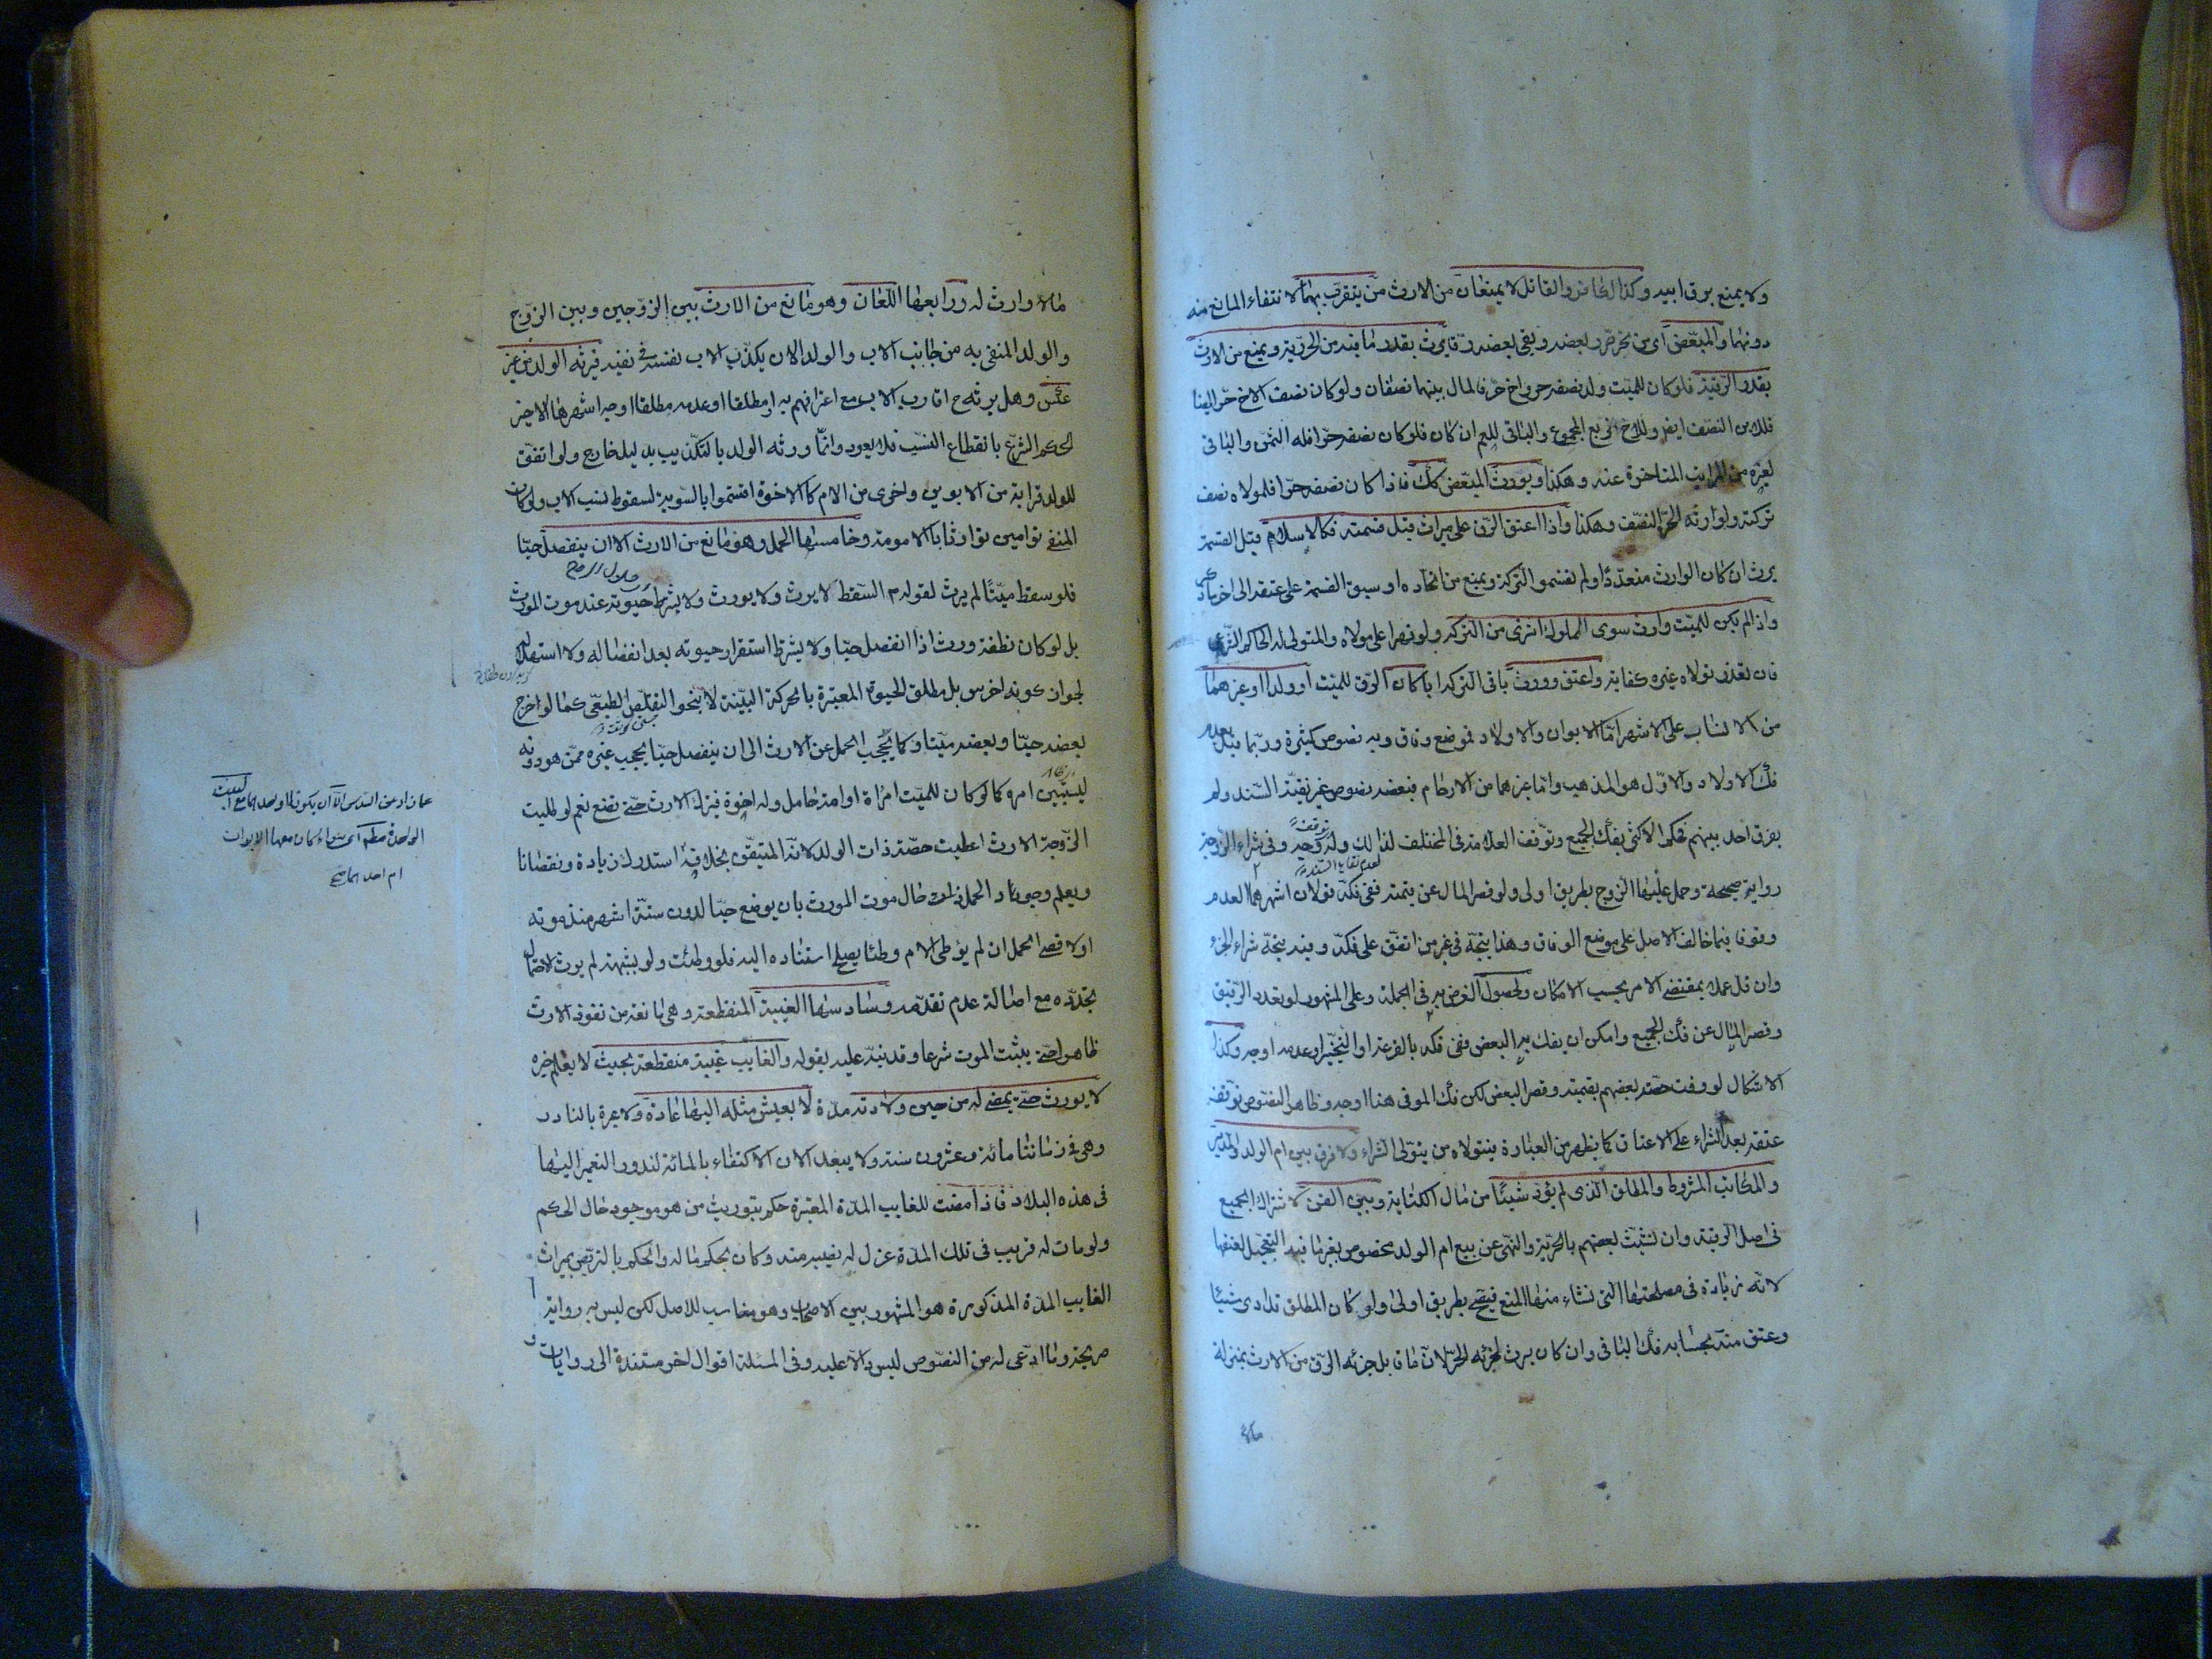 ولا يمنع برق ابيه وكذا الكافر والقاتل لا يمنعان من الارث من يتقرب بهما لانتفاء المانع منه
دونهما والمبعض اى من تحرر بعضه وبقى بعضه رقا يرث بقدر ما فيه من الحرية ويمنع من الارث
بقدر الرقية فلو كان للميت ولد نصفه حر واخ حر فالمال بينهما نصفان ولو كان نصف الاخ حرا ايضا
فللابن النصف ايضا وللاخ الربع المجموع والباقى للعم ان كان فلو كان نصفه حرا فله الثمن والباقى
لغيره من المراتب المتاخرة عنه وهكذا ويورث المبعض كك فاذا كان نصفه حرا فلمولاه نصف
تركته ولوارثه الحر النصف وهكذا واذا اعتق الرق على ميراث قبل قسمته فكالاسلام قبل القسمة
يرث ان كان الوارث متعددا ولم يقتسموا التركة ويمنع من اتحاده او سبق القسمة على عتقه الى اخر ما ذكر
واذا لم يكن للميت وارث سوى المملوك اشترى من التركة ولو قهرا على مولاه والمتولى له الحاكم الشرعى
فان تعذر تولاه غيره كفاية واعتق وورث باقى التركة ابا كان الرق للميت او ولدا او غيرهما
من الانساب على الاشهر اما الابوان والاولاد فموضع وفاق وبه نصوص كثيرة وربما قيل بعدم
فك الاولاد والاول هو المذهب واما غيرهما من الارحام فبعضه نصوص غير نقية السند ولم
يفرق احد بينهم فحكم الاكثر بفك الجميع وتوقف العلامة فى المختلف لذلك وله وجه وفى شراء الزوجة
رواية صحيحة وحمل عليها الزوج بطريق اولى ولو قصر المال عن قيمته ففى فكه قولان اشهرهما العدم
وقوفا فيما خالف الاصل على موضع الوفاق وهذا يتجه فى غير من اتفق على فكه وفيه يتجه شراء الجزء
وان قل عملا بمقتضى الامر بحسب الامكان ولحصول الغرض به فى الجملة وعلى المشهور لو تعدد الرقيق
وقصر المال عن فك الجميع وامكن ان يفك به البعض ففى فكه بالقرعة او التخيير او عدمه اوجه وكذا
الاشكال لو وفت حصة بعضهم بقيمته وقصر البعض لكن فك الموفى هنا اوجه وظاهر النصوص توقف
عتقه بعد الشراء على الاعتاق كما يظهر من العبارة فيتولاه من يتولى الشراء ولا فرق بين ام الولد والمدبر
والمكاتب المشروط والمطلق الذى لم يؤد شيئا من مال الكتابة وبين القن لاشتراك الجميع
فى اصل الرقية وان تشبث بعضهم بالحرية والنهى عن بيع ام الولد مخصوص بغير ما فيه التعجيل لعتقها
لانه زيادة فى مصلحتها التى نشاء منها المنع فيصح بطريق اولى ولو كان المطلق قد ادى شيئا
وعتق منه بحسابه فك الباقى وان كان يرث بجزئه الحر لان ما قابل جزئه الرق من الارث بمنزلة
مالا
مالا وارث له ورابعها اللعان وهو مانع من الارث بين الزوجين وبين الزوج
والولد المنفى به من جانب الاب والولد الا ان يكذب الاب نفسه فى نفيه فيرثه الولد من غير
عكس وهل يرثه ح اقارب الاب مع اعترافهم به او مطلقا او عدمه مطلقا اوجه اشهرها الاخير
لحكم الشرع بانقطاع النسب فلا يعود وانما ورثه الولد بالتكذيب بدليل خارج ولو اتفق
للولد قرابة من الابوين واخرى من الام كالاخوة اقتسموا بالسوية لسقوط نسب الاب ولو كان
المنفى توامين توارثا بالامومة وخامسها الحمل وهو مانع من الارث الا ان ينفصل حيا
فلو سقط ميتا لم يرث لقوله م السقط لا يرث ولا يورث ولا يشترط حيوته عند موت المورث
بل لو كان نطفة ورث اذا انفصل حيا ولا يشترط استقرار حيوته بعد انفصاله ولا استهلاله
لجواز كونه اخرس بل مطلق الحيوة المعتبرة بالحركة البينة لا بنحو التقلص الطبيعى كما لو اخرج
بعضه حيا وبعضه ميتا وكما يحجب الحمل عن الارث الى ان ينفصل حيا يحجب غيره ممن هو دونه
ليستبين امره كما لو كان للميت امراة او امة حامل وله اخوة فيترك الارث حتى تضع نعم لو طلبت
الزوجة الارث اعطيت حصة ذات الولد لانه المتيقن بخلاف استدرك زيادة ونقصانا
ويعلم وجود الحمل حال موت المورث بان يوضع حيا لدون ستة اشهر منذ موته
او لاقصى الحمل ان لم يوطى الام وطئا يصلح استناده اليه فلو وطئت ولو بشبهة لم يرث لاحتمال
تجدده مع اصالة عدم تقدمه وسادسها الغيبة المنقطعة وهى مانعة من نفوذ الارث
ظاهرا حتى يثبت الموت شرعا وقد نبه عليه بقوله والغايب غيبة منقطعة بحيث لا يعلم خبره
لا يورث حتى يمضى له من حين ولادته مدة لا يعيش مثله اليها عادة ولا عبرة بالنادر
وهى فى زماننا مائة وعشرون سنة ولا يبعد الان الاكتفاء بالمائة لندور التعمير اليها
فى هذه البلاد فاذا مضت للغايب المدة المعتبرة حكم بتوريث من هو موجود حال الحكم
ولو مات له قريب فى تلك المدة عزل له نصيبه منه وكان بحكم ماله والحكم بالتربص بميراث
الغايب المدة المذكورة هو المشهور بين الاصحاب وهو مناسب للاصل لكن ليس به رواية
صريحة وما ادعى له من النصوص ليس دالا عليه وفى المسئلة اقوال اخر مستندة الى روايات